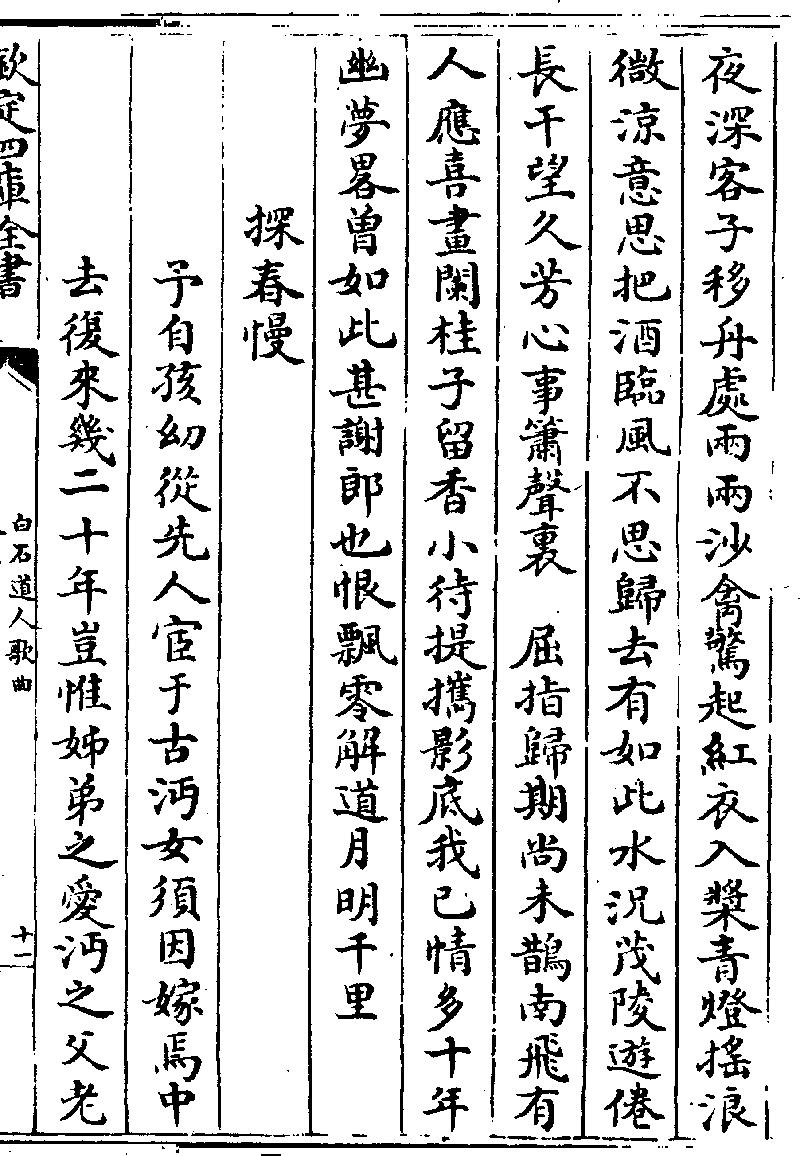 夜深客子移舟處兩兩沙禽驚起紅衣入槳青燈揺浪
微涼意思把酒臨風不思歸去有如此水況茂陵遊倦
長干望久芳心事簫聲裏　屈指歸期尚未鵲南飛有
人應喜畫闌桂子留香小待提攜影底我已情多十年
幽夢畧曽如此甚謝郎也恨飄零解道月明千里
探春慢
予自孩幼從先人宦于古沔女須因嫁焉中
去復來幾二十年豈惟姊弟之愛沔之父老
欽定四庫全書
白石道人歌曲
十一